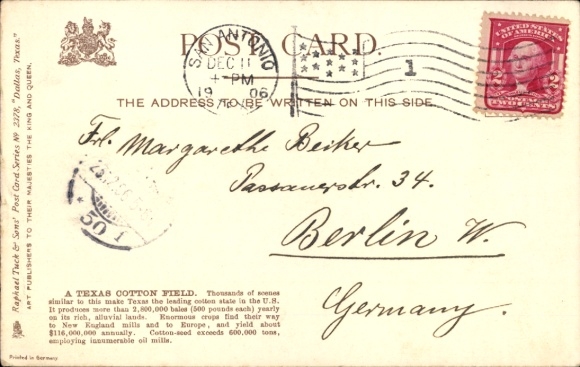 POST CARD.
SAN ANTONIO
DEC 11
4-PM
1906
1
UNITED STATES
OF AMERICA
2 2
POSTAGE
TWO CENTS
THE ADDRESS TO BE WRITTEN ON THIS SIDE.
Frl. Margarethe Beiker
Passauerstr. 34.
Berlin W.
Germany.
50 1
A TEXAS COTTON FIELD. Thousands of scenes
similar to this make Texas the leading cotton state in the U.S.
It produces more than 2,800,000 bales (500 pounds each) yearly
on its rich, alluvial lands. Enormous crops find their way
to New England mills and to Europe, and yield about
$116,000,000 annually. Cotton-seed exceeds 600,000 tons,
employing innumerable oil mills.
Raphael Tuck & Sons' Post Card Series No 2378, "Dallas, Texas."
ART PUBLISHERS TO THEIR MAJESTIES THE KING AND QUEEN.
Printed in Germany